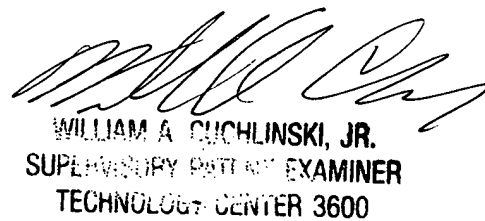 WILLIAM A. CUCHLINSKI, JR.
SUPERVISORY PATENT EXAMINER
TECHNOLOGY CENTER 3600